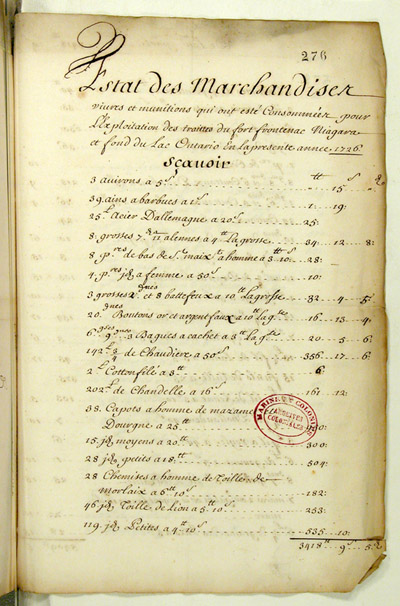 276
Estat des Marchandises
vivres et munitions qui ont esté Consommées pour
L'Exploitation des traittes du fort frontenac Niagara
et fond du Lac Ontario En la presente année 1726
Sçavoir
3 avirons a 5s 15
39 ains a barbues a 1s 1 19
25 l Acier Dallemagne a 20s 25
8 grosses 7 11 alennes a 4tt La grosse 34 12 8
8 pres de bas de St maixt a homme a 3tt 10s 28
4 pres jd a femme a 50s 10
3 grosses et 8 battefeux a 10tt La grosse 32 4 5
20 Boutons or et argent faux a 10s La 16 13 4
6 9 3 Bagues a cachet a 3tt La 20 5 6
142 l 3/4 de Chaudiere a 50s 356 17 6
2 l Cotton filé a 3tt 6
202 l de Chandelle a 16s 161 12
38 Capots a homme de mazame
Dourgne a 25tt
15 jd moyens a 20tt 300
28 jd petits a 18tt 504
28 Chemises a homme de Toille de
morlaix a 6tt 10s 182
46 jd Toille de Lion a 5tt 10s 253
119 jd Petites a 4tt 10s 535 10
3418tt 9s 5
MARINE ET COLONIES
ARCHIVES
COLONIALES